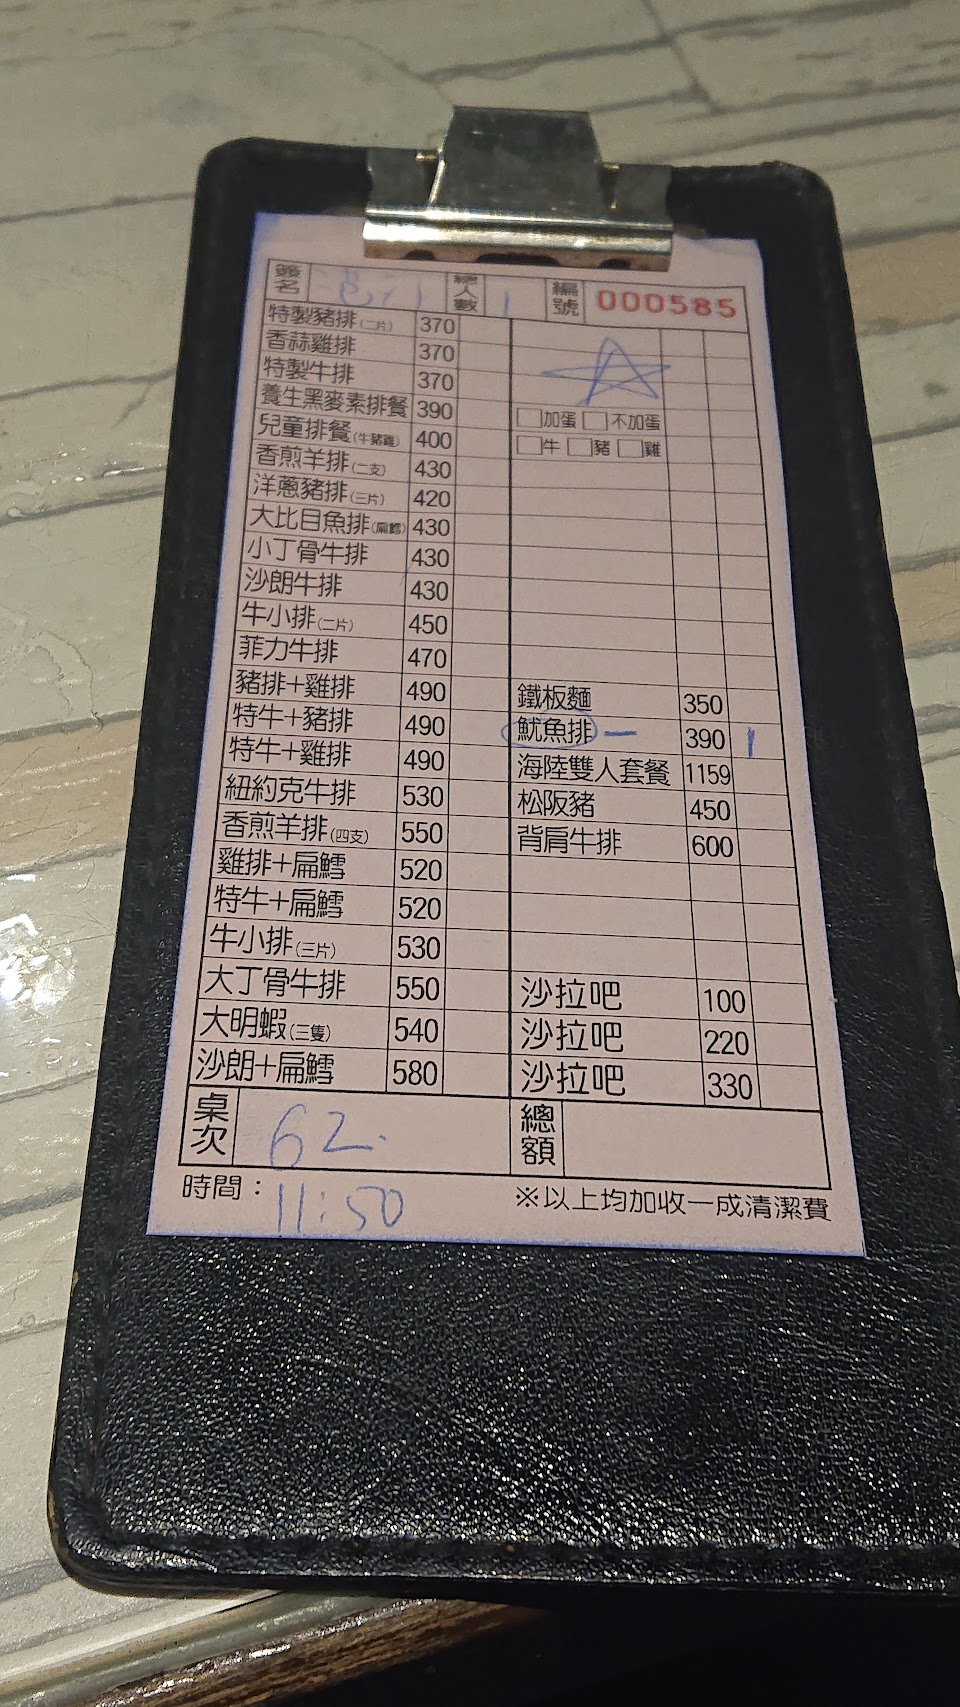 簽名 總人數 1 編號 000585
特製豬排(二片) 370
香蒜雞排 370
特製牛排 370
養生黑麥素排餐 390 □加蛋 □不加蛋
兒童排餐(牛豬雞) 400 □牛 □豬 □雞
香煎羊排(二支) 430
洋蔥豬排(三片) 420
大比目魚排(扁鱈) 430
小丁骨牛排 430
沙朗牛排 430
牛小排(二片) 450
菲力牛排 470
豬排+雞排 490 鐵板麵 350
特牛+豬排 490 魷魚排 — 390 1
特牛+雞排 490 海陸雙人套餐 1159
紐約克牛排 530 松阪豬 450
香煎羊排(四支) 550 背肩牛排 600
雞排+扁鱈 520
特牛+扁鱈 520
牛小排(三片) 530
大丁骨牛排 550 沙拉吧 100
大明蝦(三隻) 540 沙拉吧 220
沙朗+扁鱈 580 沙拉吧 330
桌次 62. 總額
時間：11:50 ※以上均加收一成清潔費